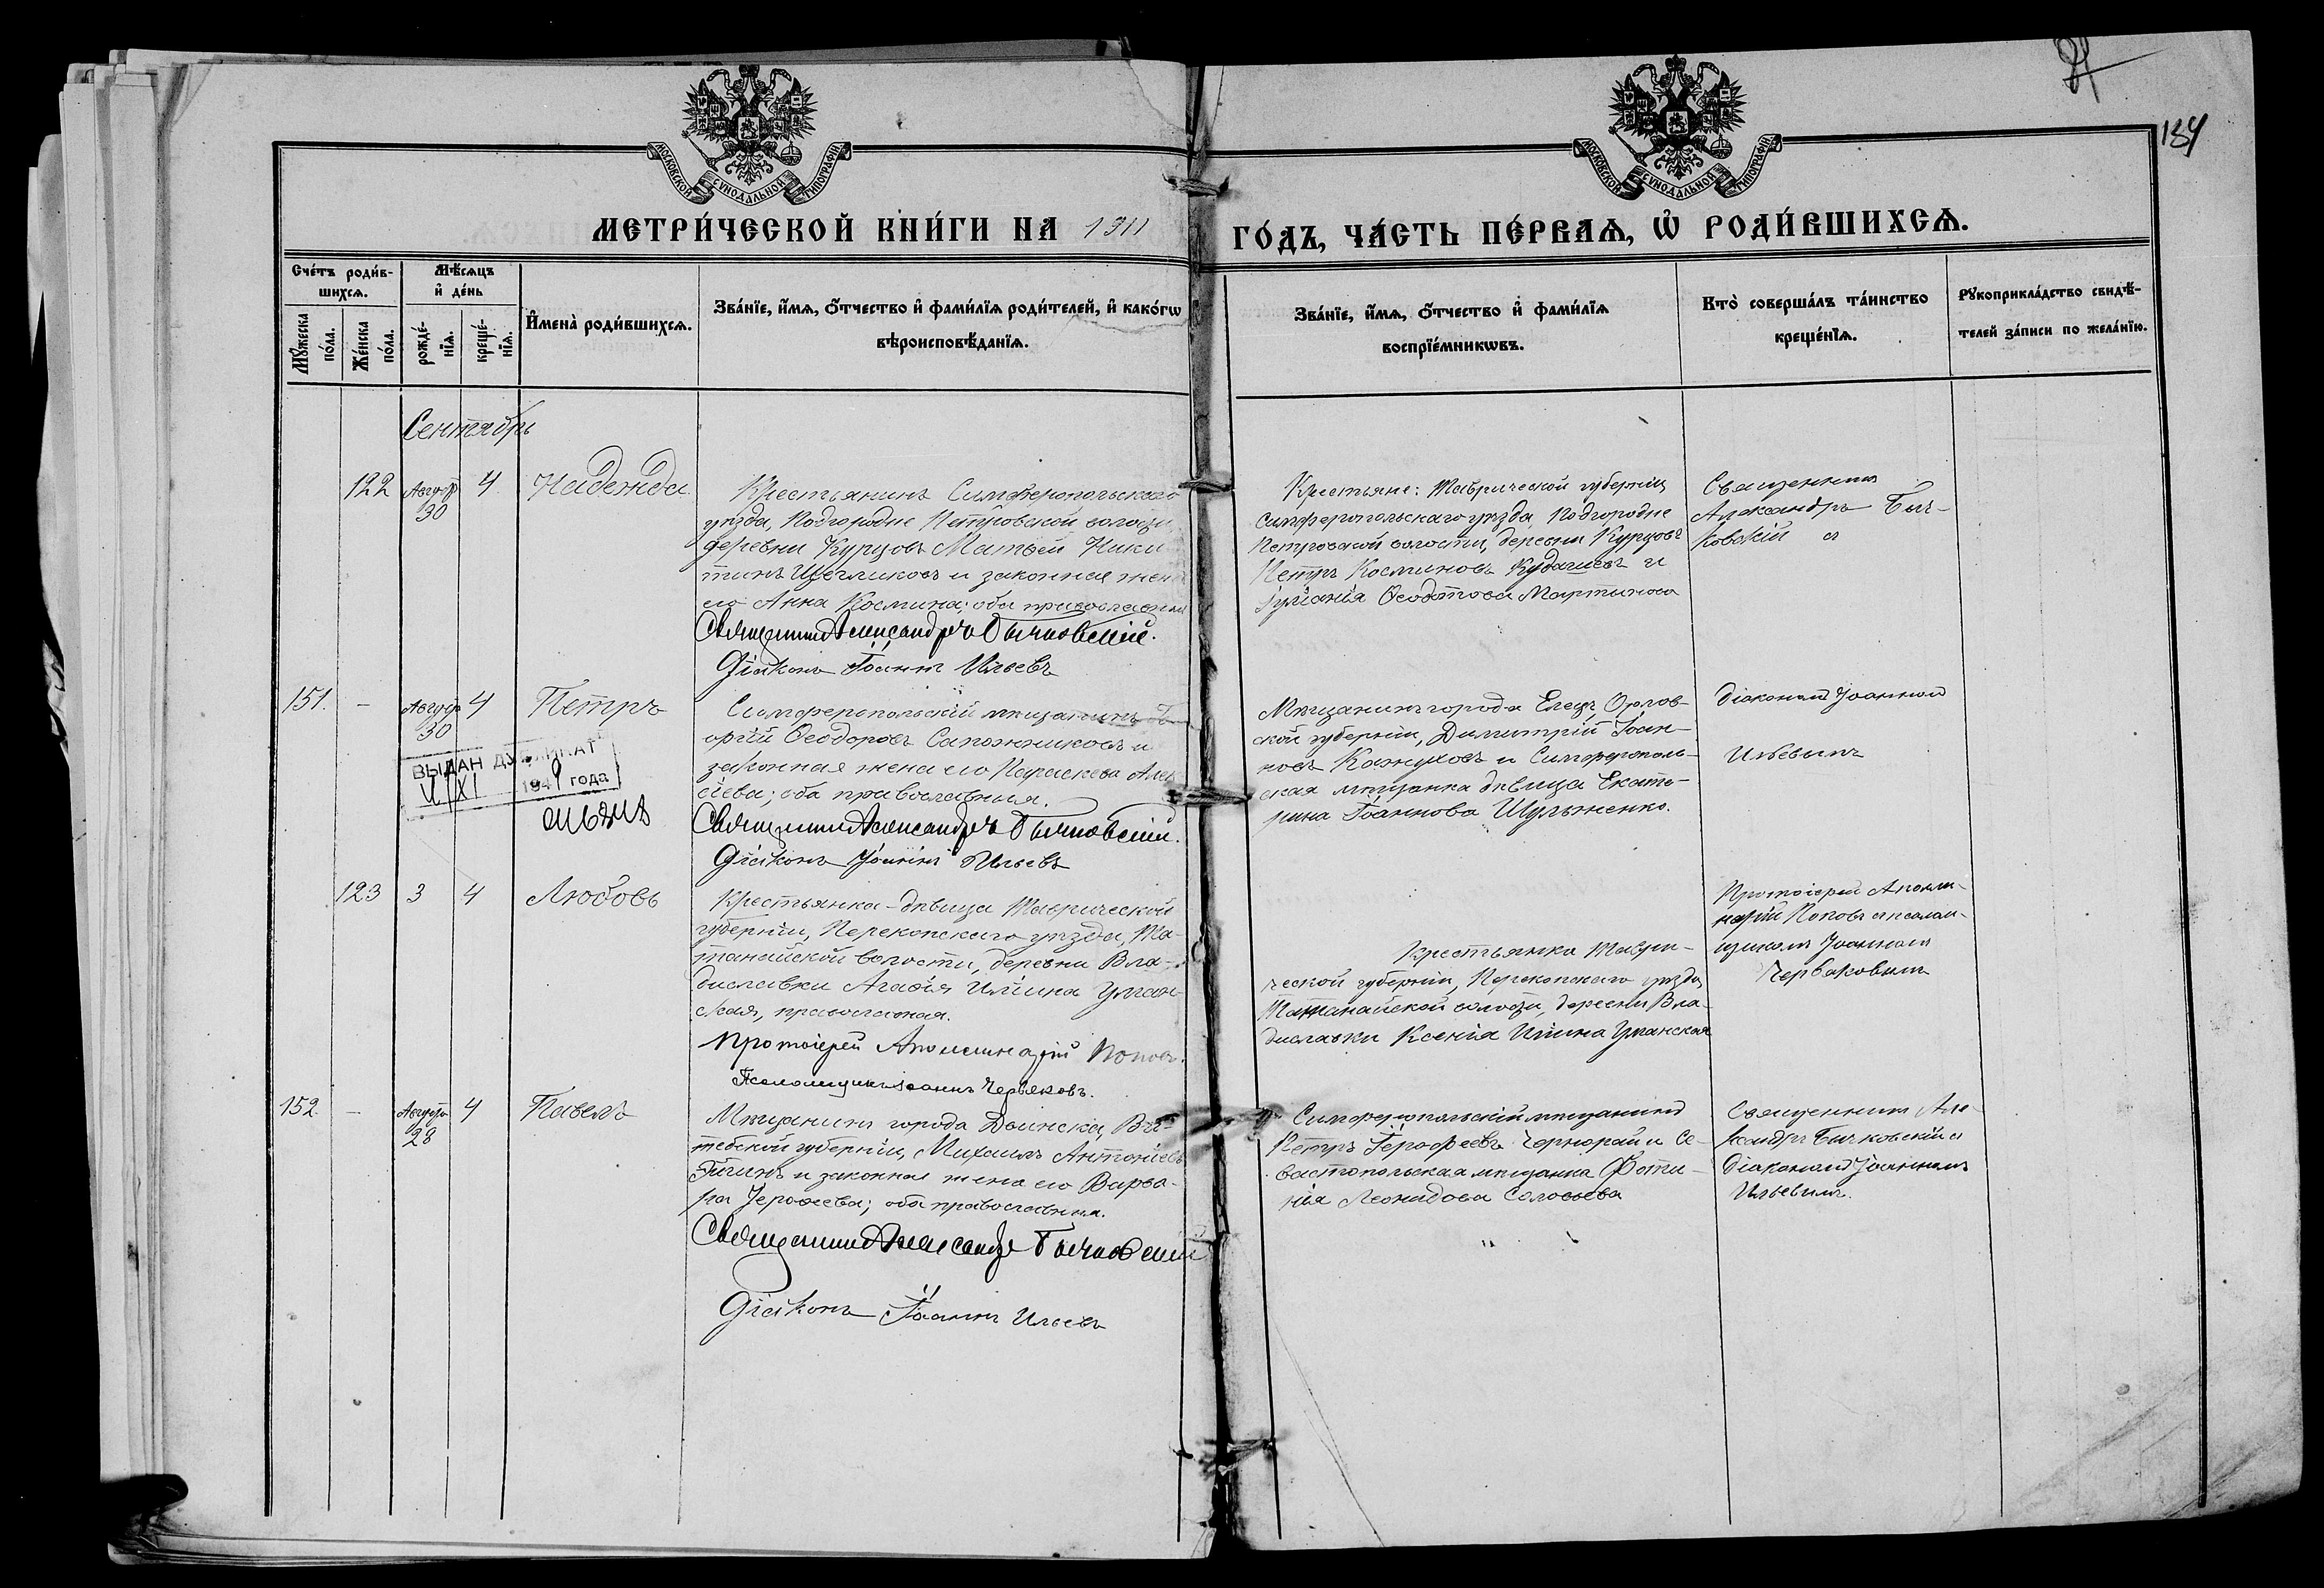 134
МОСКОВСКОЙ СѴНОДАЛЬНОЙ ТИПОГРАФІИ
МОСКОВСКОЙ СѴНОДАЛЬНОЙ ТИПОГРАФІИ
МЕТРИ́ЧЕСКОЙ КНИ́ГИ НА 1911
ГО́ДЪ, ЧА́СТЬ ПЕ́РВАѦ, Ѡ҆ РОДИ́ВШИХСѦ.
Сче́тъ роди́в-
шихсѧ.
Мѣ́сѧцъ
и҆ де́нь
Мꙋ́жеска
по́ла.
Же́нска
по́ла.
рожде́-
нїѧ.
креще́-
нїѧ.
И҆мена̀ роди́вшихсѧ.
Зва́нїе, и҆́мѧ, ѻ҆́тчество и҆ фами́лїѧ роди́телей, и҆ како́гѡ
вѣроисповѣ́данїѧ.
Зва́нїе, и҆́мѧ, ѻ҆́тчество и҆ фами́лїѧ
воспрїе́мникѡвъ.
Кто̀ соверша́лъ та́инство
креще́нїѧ.
Рꙋкоприкла́дство свидѣ́-
телей за́писи по жела́нїю.
Сентябрь
122 Август 30 4 Надежда
Крестьянинъ Симферопольскаго
уѣзда, Подгородне Петровской волости
деревни Курцовъ Матѳей Ники
тинъ Щегликовъ и законная жена
его Анна Космина; оба православные
Священникъ Александръ Бычковскій.
Діаконъ Іоаннъ Ильевъ
Крестьяне: Таврической губерніи,
Симферопольскаго уѣзда, Подгородне
Петровской волости, деревни Курцовъ
Петръ Косминовъ Кудашевъ и
Іуліанія Ѳеодотова Мартинова
Священникъ
Александръ Быч-
ковскій
151. - Август 30 4 Петръ
Симферопольскій мѣщанинъ Ге
оргій Ѳеодоровъ Сапожниковъ и
законная жена его Параскева Алек
сіева; оба православныя.
Священникъ Александръ Бычковскій.
Діаконъ Іоаннъ Ильевъ
ВЫДАН ДУБЛИКАТ
1949 года
Мѣщанинъ города Елецъ, Орлов-
ской губерніи, Димитрій Іоан-
новъ Кожуховъ и Симферополь-
ская мѣщанка дѣвица Екате-
рина Іоаннова Шульженко.
Діакономъ Іоанномъ
Ильевымъ
123 3 4 Любовь
Крестьянка-дѣвица Таврической
губерніи, Перекопскаго уѣзда, Та-
танайской волости, деревни Вла-
диславки Агафія Иліина Уман-
ская, православная.
Протоіерей Аполлинарій Поповъ.
Псаломщикъ Іоаннъ Червяковъ.
Крестьянка Таври-
ческой губерніи, Перекопскаго уѣзда,
Татанайской волости, деревни Вла-
диславки Ксенія Иліина Уманская
Протоіерей Аполли-
нарій Поповъ съ псалом-
щикомъ Іоанномъ
Червяковымъ
152. - Августа 28 4 Павелъ
Мѣщанинъ города Двинска, Ви-
тебской губерніи, Михаилъ Антоніевъ
и законная жена его Варва-
ра Іероѳеева; оба православныя.
Священникъ Александръ Бычковскій
Діаконъ Іоаннъ Ильевъ
Симферопольскій мѣщанинъ
Петръ Іерофеевъ Чернорай и Се-
вастопольская мѣщанка Фоти-
нія Леонидова Соловьева
Священникъ Але-
ксандръ Бычковскій съ
діакономъ Іоанномъ
Ильевымъ.